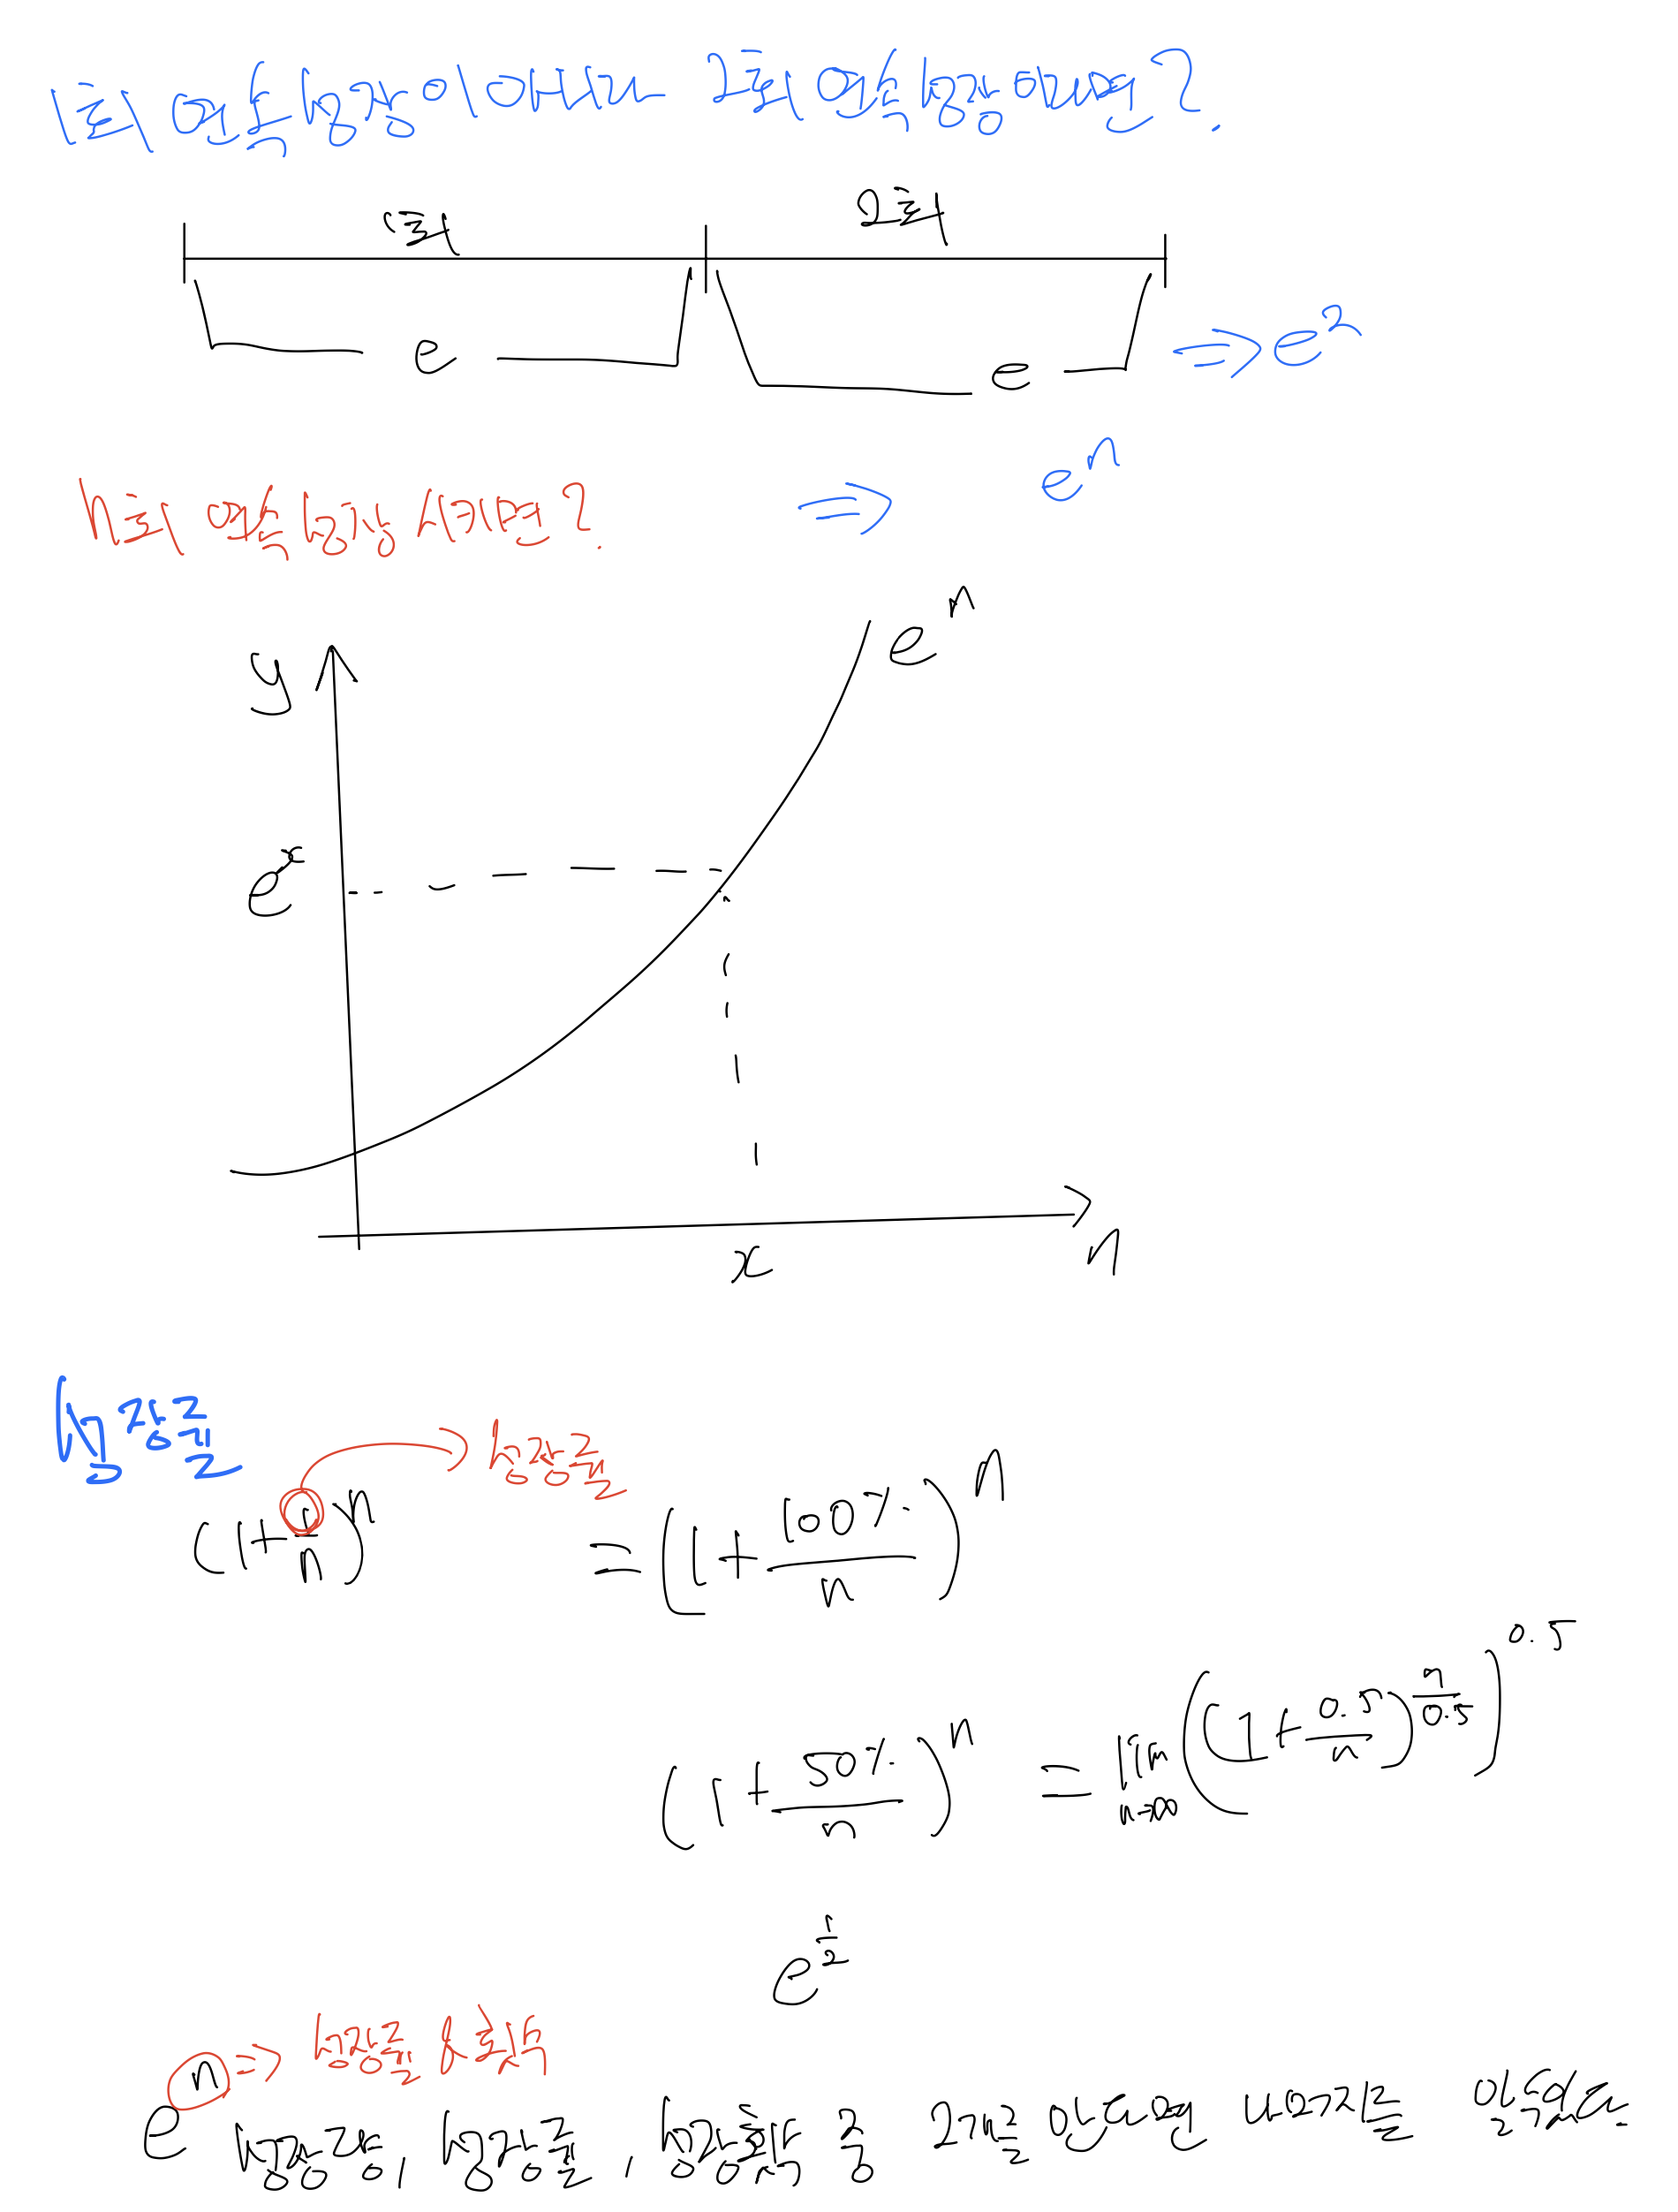 1회 연속성장이 아니라 2회 연속성장이라면?
1회 2회
e e ⇒ e²
n회 연속 성장 시키면? ⇒ eⁿ
y eⁿ
eˣ
x n
성장률
(1+1/n)ⁿ → 성장률 = (1+100%/n)ⁿ
(1+50%/n)ⁿ = lim n→∞ ((1+0.5/n)^(n/0.5))^0.5
e^(1/2)
eⁿ ⇒ 성장률 & 횟수
성장량, 성장률, 성장횟수 중 2개만 알아도 나머지는 알 수 있다